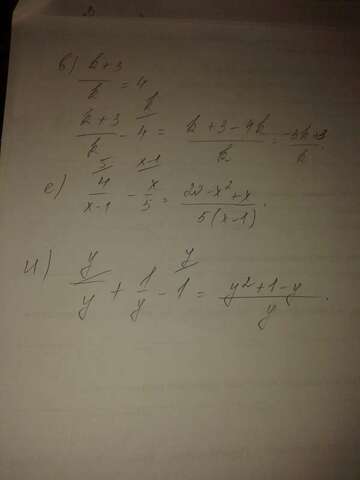 в) (b+3)/b = 4
(b+3)/b - 4 (b/ = (b+3-4b)/b = (-3b+3)/b.
е) 4/(x-1) (5/ - x/5 (x-1/ = (20-x²+x)/(5(x-1)).
и) y/y + 1/y - 1 (y/ = (y²+1-y)/y.